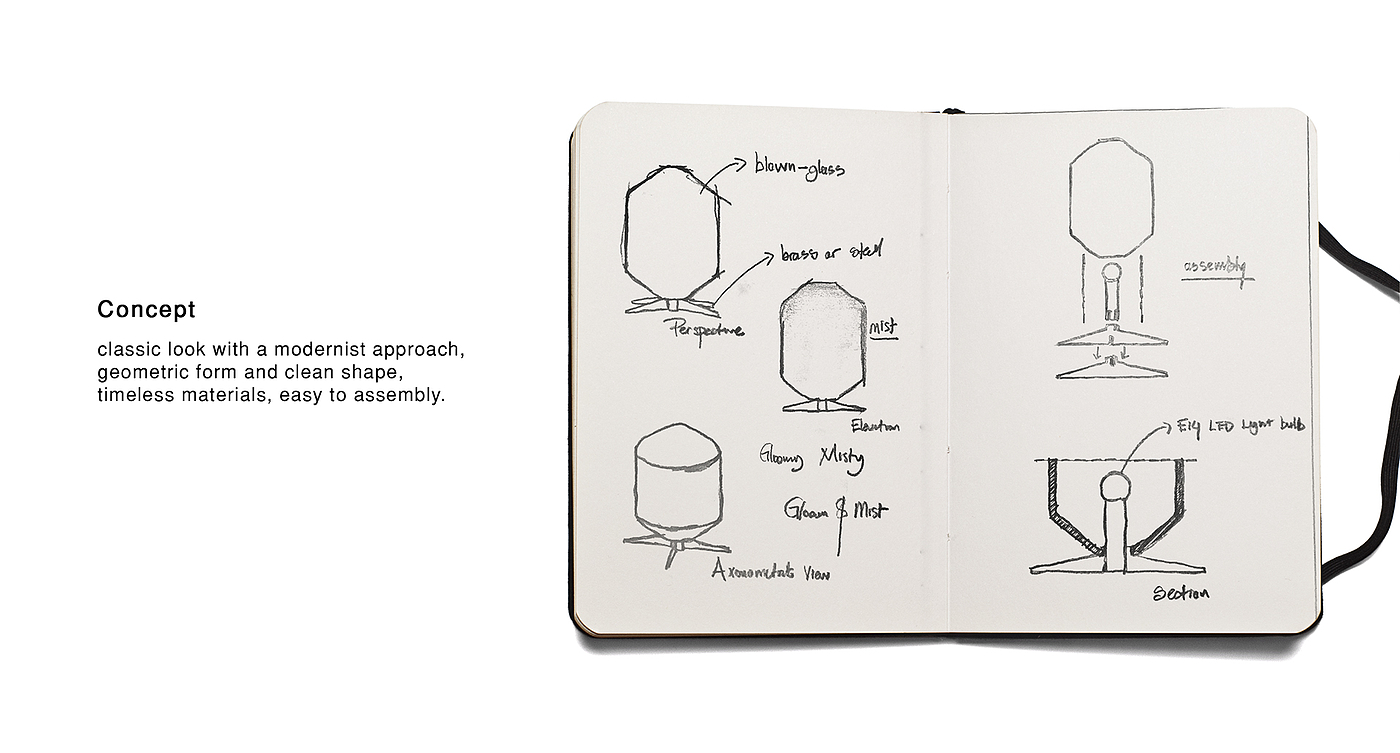 Concept
classic look with a modernist approach,
geometric form and clean shape,
timeless materials, easy to assembly.
blown-glass
brass or steel
Perspective
mist
Elevation
Gloomy Misty
Gloom & Mist
Axonometric View
assembly
E14 LED Light bulb
Section